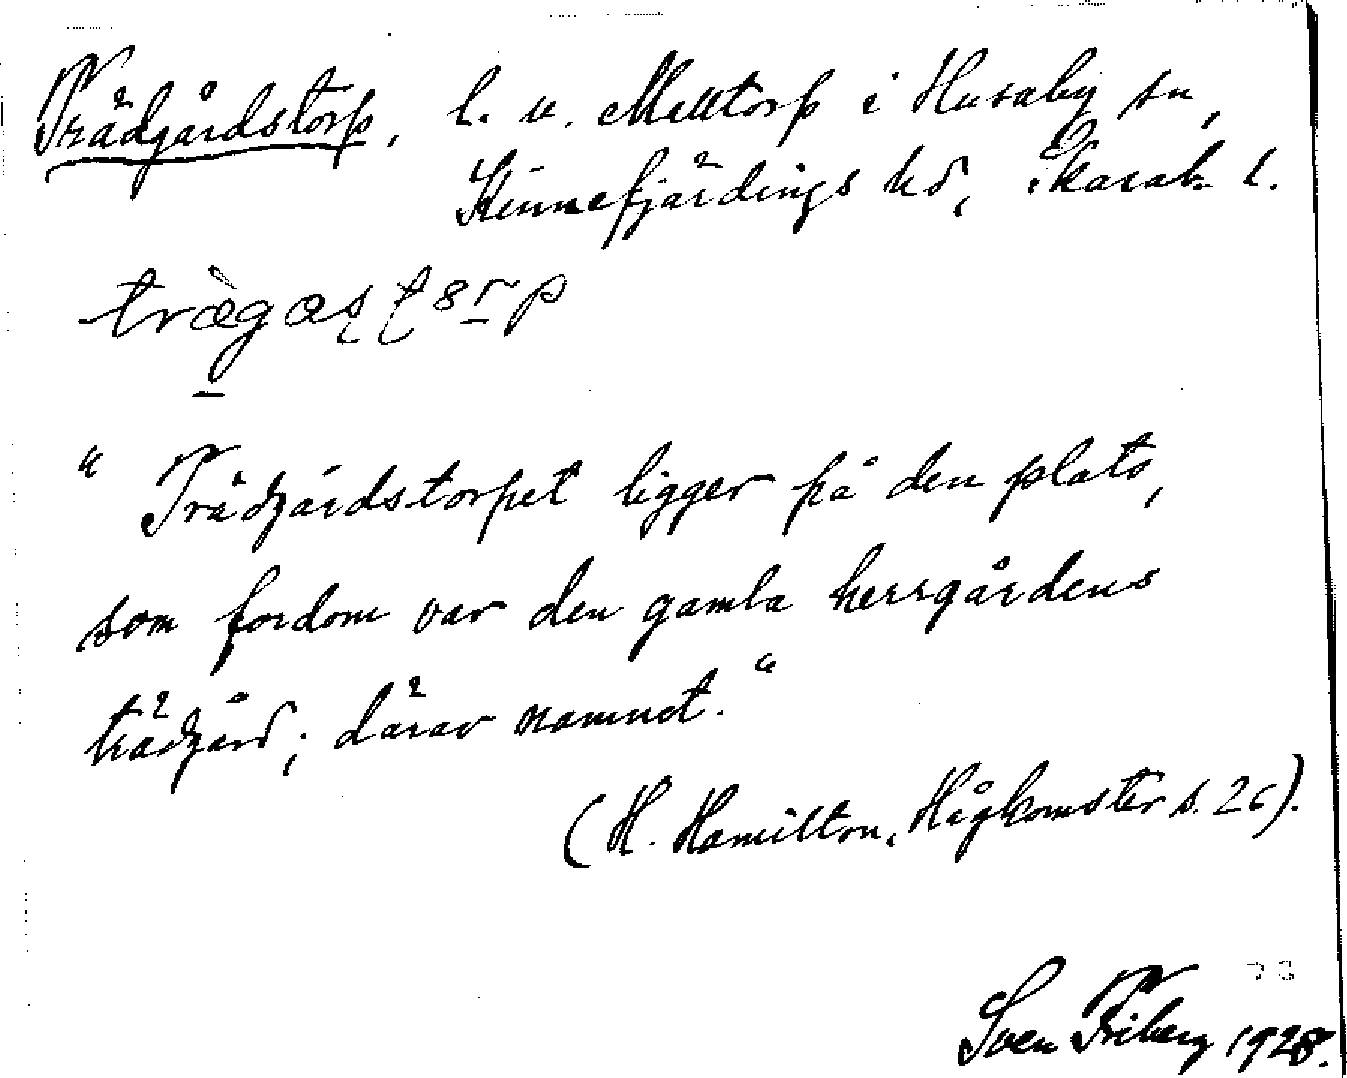 Trädgårdstorp, l. u. Melltorp i Husaby sn,
Kinnefjärdings hd, Skarab. l.
trægas
" Trädgårdstorpet ligger på den plats,
som fordom var den gamla herrgårdens
trädgård; därav namnet."
(H. Hamilton, Hågkomster s. 26).
Sven Friberg 1928.